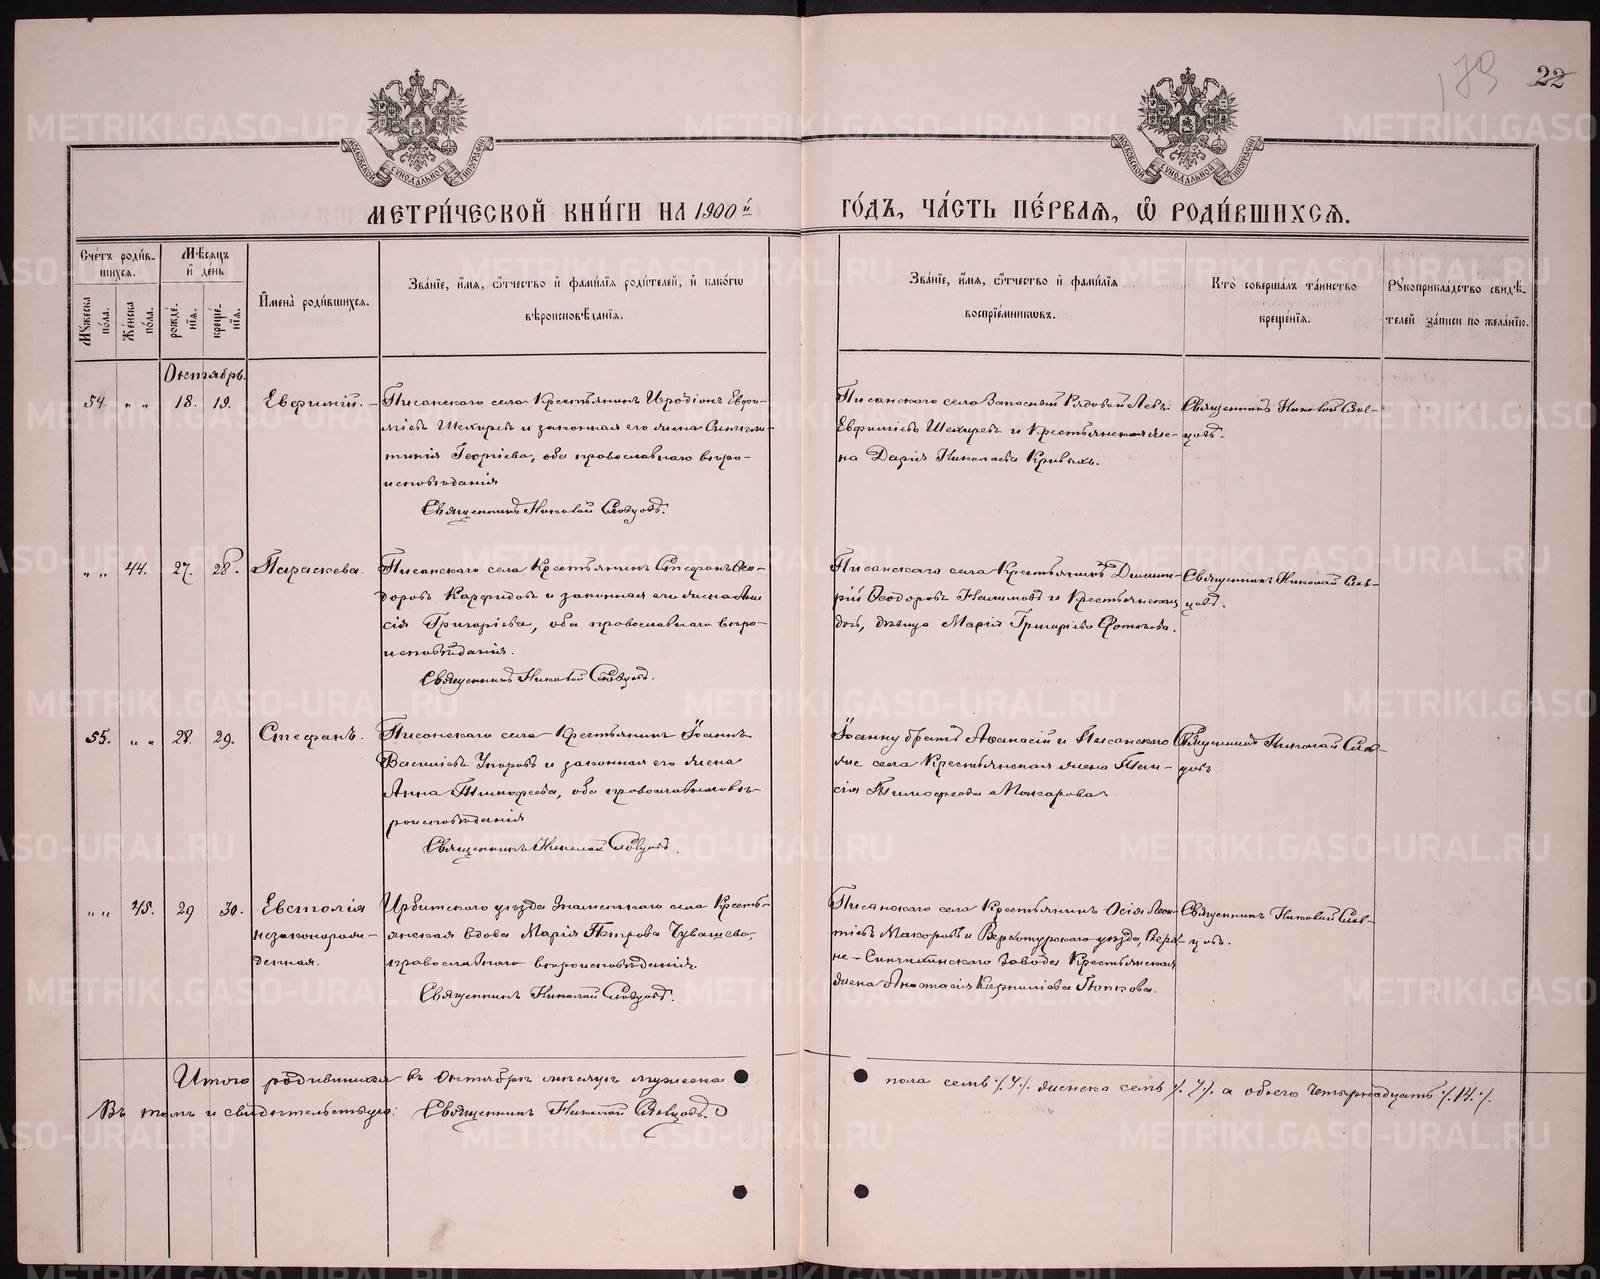 179
22
МОСКОВСКОЙ СѴНОДАЛЬНОЙ ТИПОГРАФІИ
МОСКОВСКОЙ СѴНОДАЛЬНОЙ ТИПОГРАФІИ
МЕТРИ́ЧЕСКОЙ КНИ́ГИ НА 1900й
ГО́ДЪ, ЧА́СТЬ ПЕ́РВАЯ, Ѿ РОДИ́ВШИХСЯ.
Сче́тъ роди́вшихся.
Мѣ́сяцъ и де́нь
Му́жеска по́ла.
Же́нска по́ла.
рожде́нїя.
креще́нїя.
И҆мена̀ роди́вшихся.
Зва́нїе, и҆́мя, ѻ҆́тчество и҆ фами́лїя роди́телей, и҆ како́гѡ
вѣроисповѣ́данїя.
Зва́нїе, и҆́мя, ѻ҆́тчество и҆ фами́лїя
воспрїе́мникѡвъ.
Кто̀ соверша́лъ та́инство
креще́нїя.
Рꙋкоприкла́дство свидѣ́-
телей за́писи по жела́нїю.
Октябрь.
54. „ „ 18. 19. Евфимій. –
Писанскаго села Крестьянинъ Иродіонъ Евфи-
міевъ Шехиревъ и законная его жена Синкли-
тикія Георгіева, оба православнаго вѣро-
исповѣданія
Священникъ Николай Словцовъ.
Писанскаго села Запасный Рядовой Левъ
Евфиміевъ Шехиревъ и Крестьянская же-
на Дарія Николаева Кривыхъ.
Священникъ Николай Слов-
цовъ.
„ „ 44. 27. 28. Параскева.
Писанскаго села Крестьянинъ Стефанъ Ѳео-
доровъ и законная его жена
Григоріева, оба православнаго вѣро-
исповѣданія.
Священникъ Николай Словцовъ.
Писанскаго села Крестьянинъ Димит-
рій Ѳеодоровъ Налимовъ и Крестьянская
дочь, дѣвица Марія Григоріева
Священникъ Николай Слов-
цовъ.
55. „ „ 28. 29. Стефанъ.
Писанскаго села Крестьянинъ Іоаннъ
Васильевъ и законная его жена
Анна Тимофеева, оба православнаго вѣ-
роисповѣданія
Священникъ Николай Словцовъ.
Іоанну братъ Аѳанасій и Писанскаго
же села Крестьянская жена Таи-
сія Тимофеева Макарова
Священникъ Николай Слов-
цовъ
„ „ 45. 29 30. Евстолія
незаконорож-
денная.
Ирбитскаго уѣзда Знаменскаго села Кресть-
янская вдова Марія Петрова Чувашева,
православнаго вѣроисповѣданія.
Священникъ Николай Словцовъ.
Писанскаго села Крестьянинъ Осія Леон-
тіевъ Макаровъ и Верхотурскаго уѣзда, Верх-
не-Синячихинскаго Завода Крестьянская
жена Анастасія Корниліева Пяткова.
Священникъ Николай Слов-
цовъ.
Итого родившихся въ Октябрѣ мѣсяцѣ мужеска
пола семь ٪7٪. женска семь ٪7٪. а обоего четырнадцать ٪14٪.
Въ томъ и свидѣтельствую: Священникъ Николай Словцовъ.